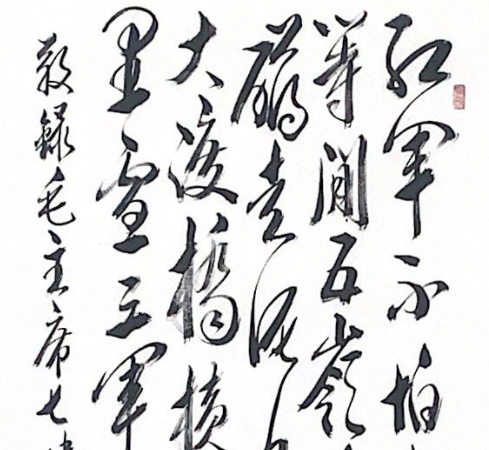 红軍不怕
等閒五嶺
礴走泥
大渡橋横
里雪三軍
敬録毛主席七